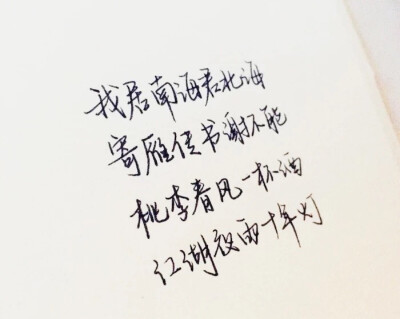 我居南海君北海
寄雁传书谢不能
桃李春风一杯酒
江湖夜雨十年灯